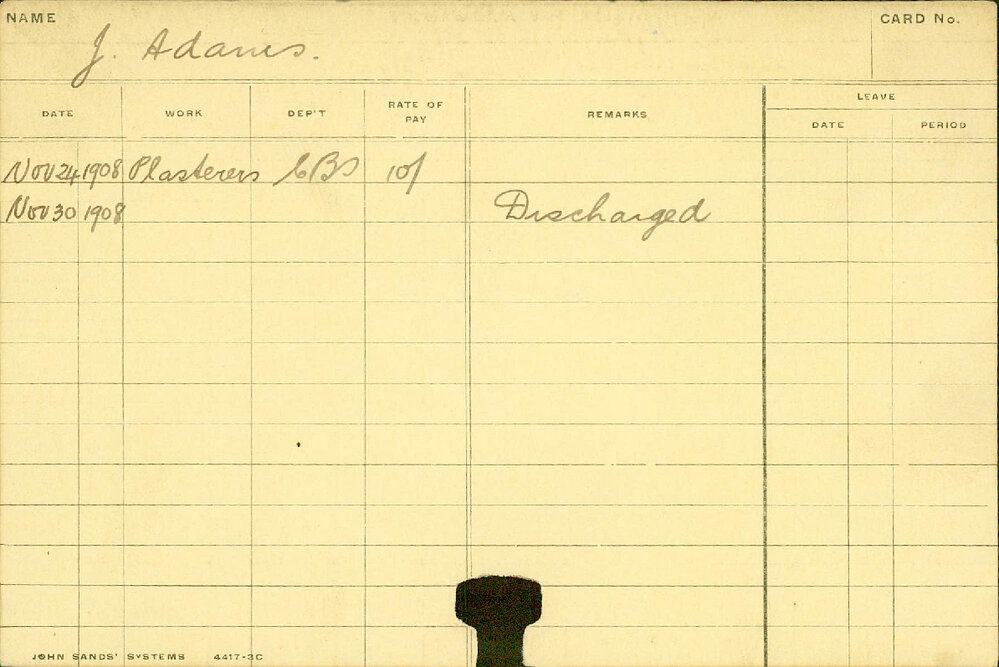 NAME J. Adams. CARD No.
DATE WORK DEP'T RATE OF PAY REMARKS LEAVE
DATE PERIOD
Nov 24 1908 Plasterers CBS 10/
Nov 30 1908 Discharged
JOHN SANDS' SYSTEMS 4417-3C